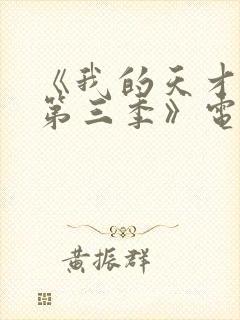 《我的天才
第三季》電
黄振群